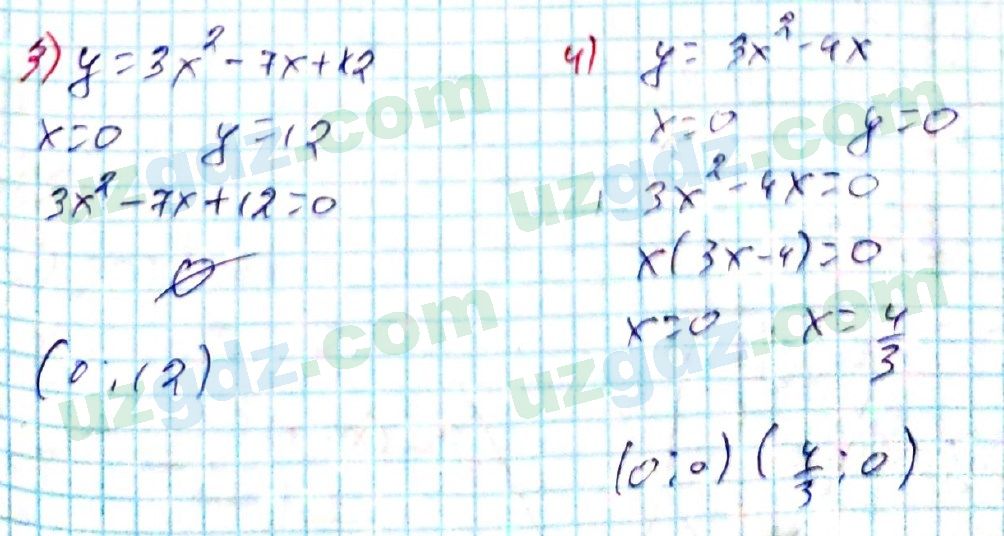 3) y = 3x² - 7x + 12
x = 0 y = 12
3x² - 7x + 12 = 0
∅
(0 ; 12)
4) y = 3x² - 4x
x = 0 y = 0
3x² - 4x = 0
x(3x - 4) = 0
x = 0 x = 4/3
(0 ; 0) (4/3 ; 0)
uzgdz.com
uzgdz.com
uzgdz.com
uzgdz.com